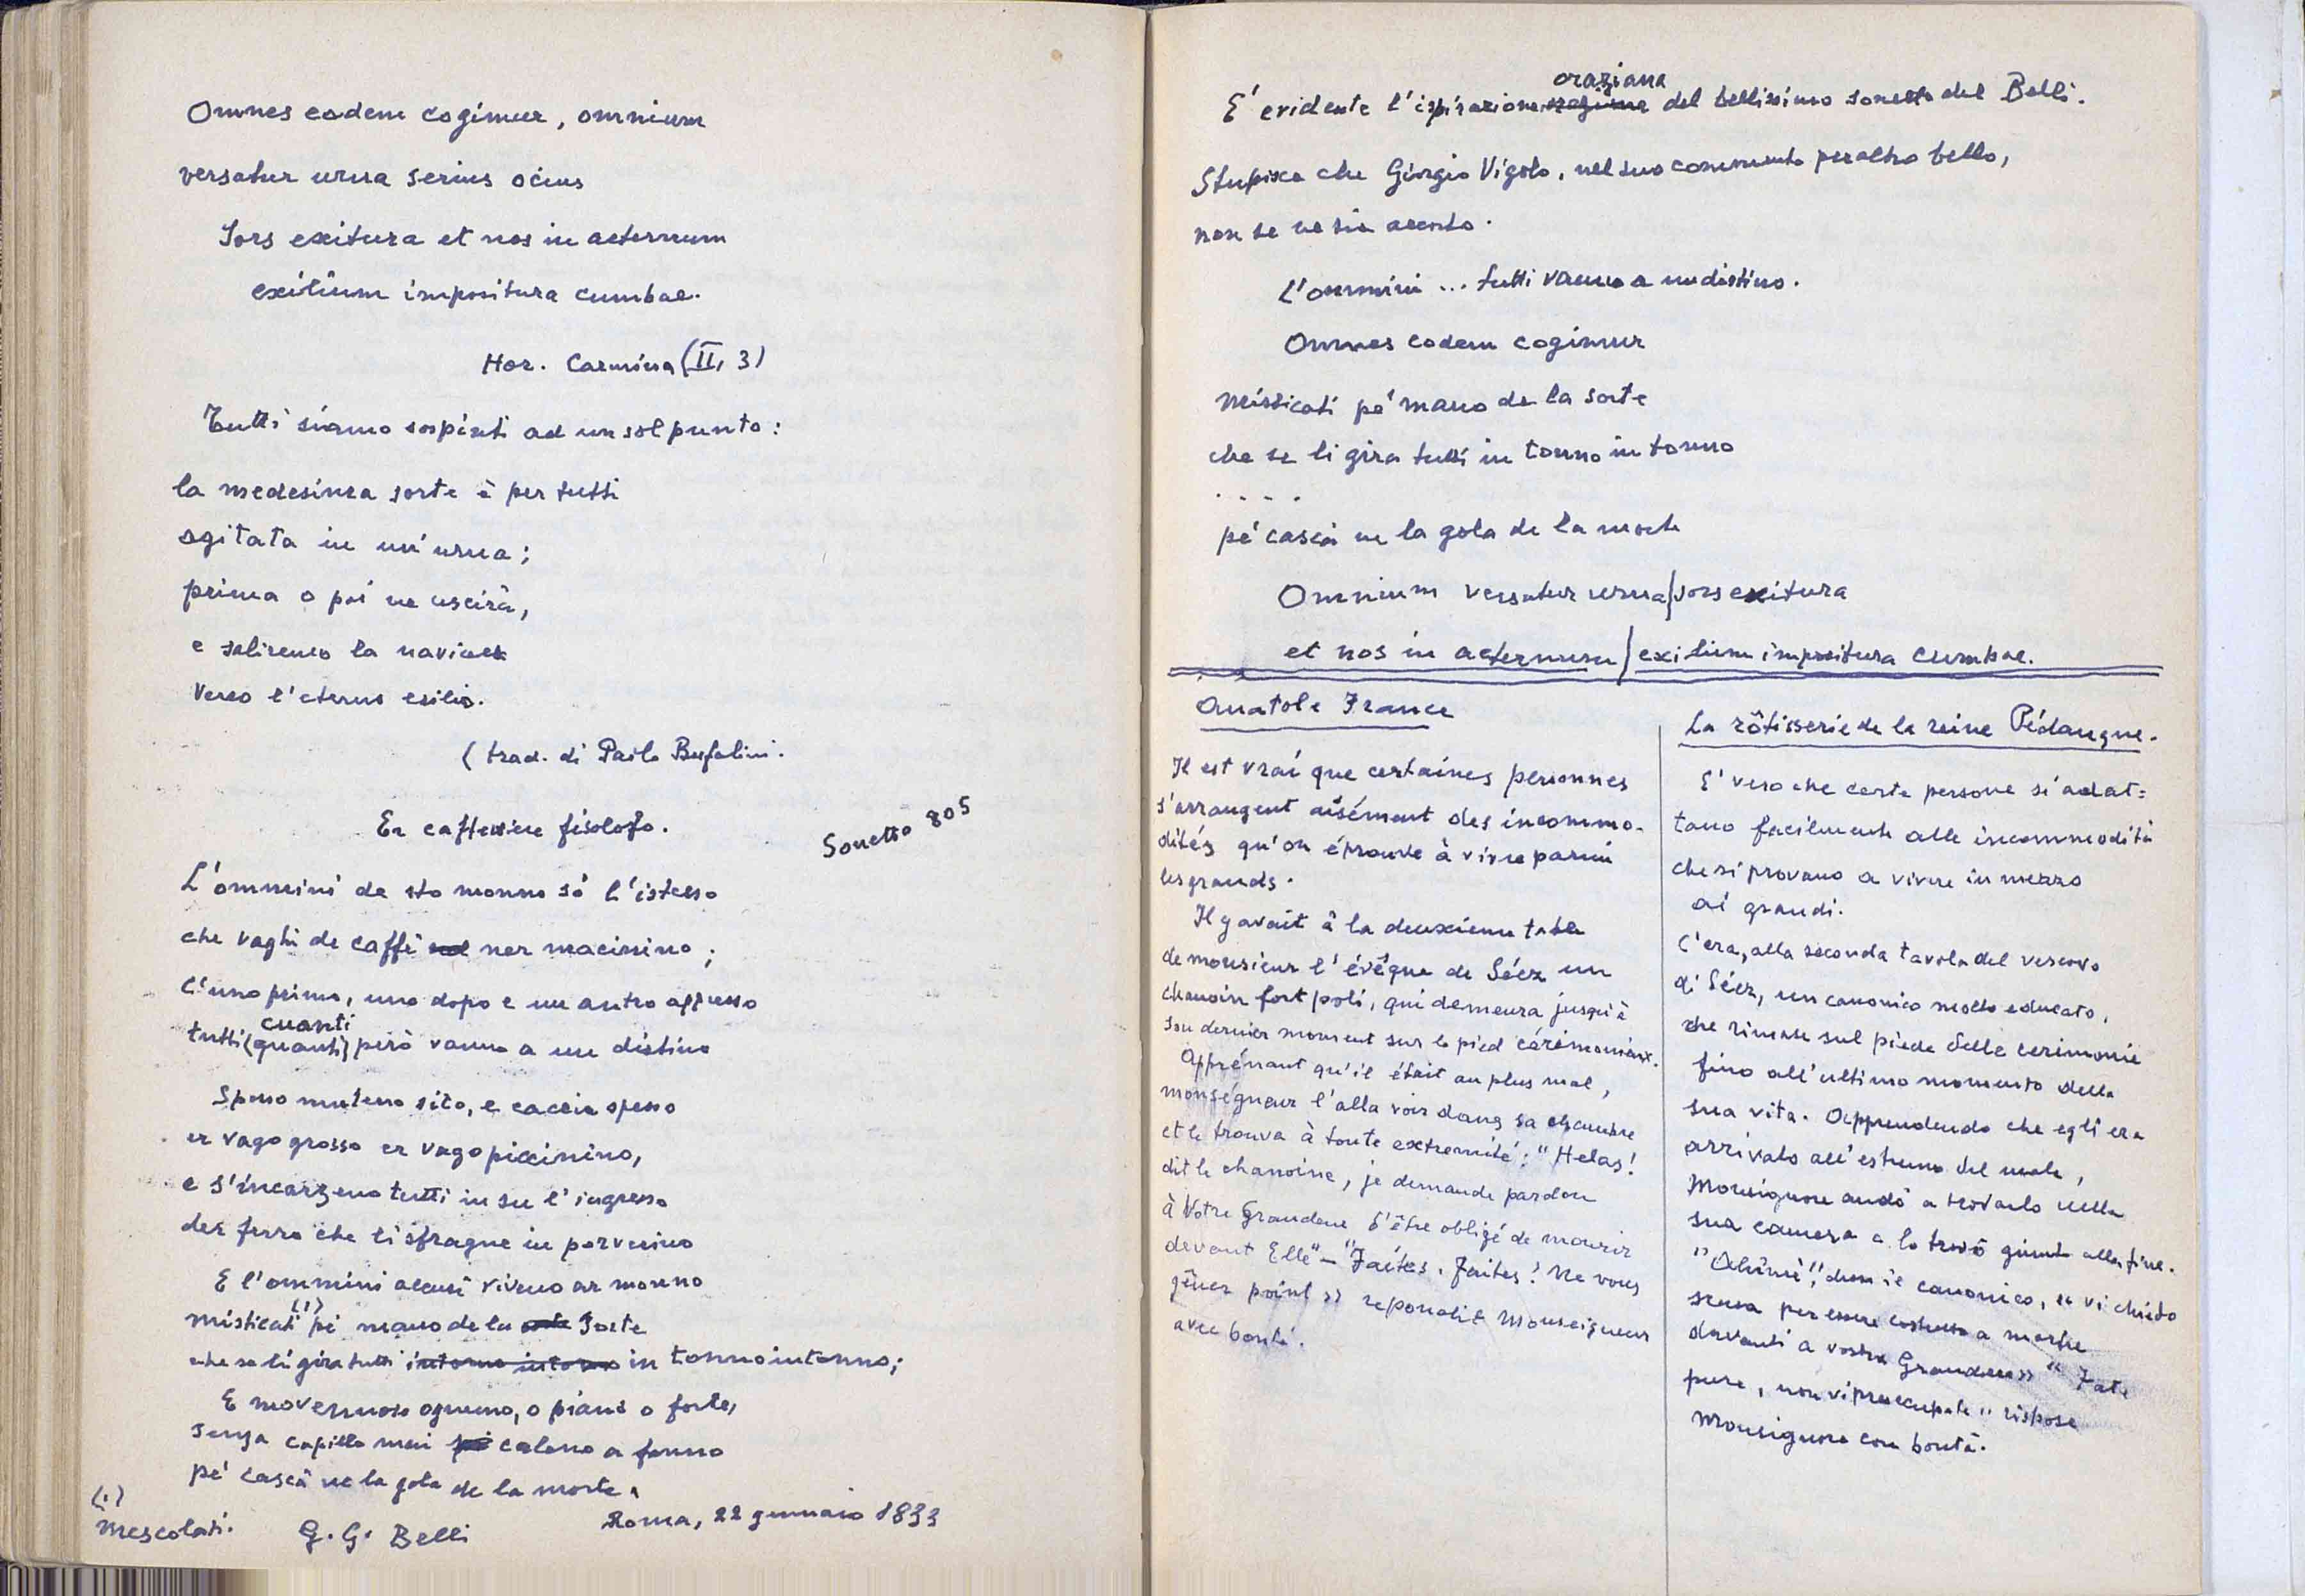 Omnes eodem cogimur, omnium
versatur urna serius ocius
Sors exitura et nos in aeternum
exilium impositura cumbae.
Hor. Carmina (II, 3)
Tutti siamo sospinti ad un sol punto:
la medesima sorte è per tutti
agitata in un'urna;
prima o poi ne uscirà,
e saliremo la navicella
verso l'eterno esilio.
(trad. di Paolo Bufalini.
Er caffettiere fisolofo.
Sonetto 805
L'ommini de sto monno sò l'istesso
che vaghi de caffè ner macinino;
c'uno prima, uno dopo e un antro appresso
cuanti
tutti (quanti) però vanno a un distino
Spesso muteno sito, e caccia spesso
er vago grosso er vago piccinino,
e s'incarzeno tutti in su l'ingresso
der ferro che li sfragne in porverino
E l'ommini accusì viveno ar monno
misticati (1) pe' mano de la sorte
che se li gira tutti intorno intorno in tonno in tonno;
E movennose ognuno, o piano o forte,
senza capillo mai calano a fonno
pe' cascà ne la gola de la morte.
(1)
Mescolati.
G. G. Belli
Roma, 22 gennaio 1833
oraziana
E' evidente l'ispirazione del bellissimo sonetto del Belli.
Stupisce che Giorgio Vigolo, nel suo commento peraltro bello,
non se ne sia accorto.
L'ommini ... tutti vanno a un distino.
Omnes eodem cogimur
Misticati pe' mano de la sorte
che se li gira tutti in tonno in tonno
. . . .
pe' cascà ne la gola de la morte
Omnium versatur urna/sors exitura
et nos in aeternum/exilium impositura cumbae.
Anatole France
Il est vrai que certaines personnes
s'arrangent aisément des incommo-
dités qu'on éprouve à vivre parmi
les grands.
Il y avait à la deuxième table
de monsieur l'évêque de Séez un
chanoine fort poli, qui demeura jusqu'à
son dernier moment sur le pied cérémonieux.
Apprenant qu'il était au plus mal,
monségneur l'alla voir dans sa chambre
et le trouva à toute extremité: "Helas!
dit le chanoine, je demande pardon
à Votre Grandeur d'être obligé de mourir
devant Elle" - "Faites, faites! Ne vous
gêner point" repondit Monseigneur
avec bonté.
La rôtisserie de la reine Pédauque.
E' vero che certe persone si adat=
tano facilmente alle incommodità
che si provano a vivere in mezzo
ai grandi.
C'era, alla seconda tavola del vescovo
di Séez, un canonico molto educato,
che rimase sul piede delle cerimonie
fino all'ultimo momento della
sua vita. Apprendendo che egli era
arrivato all'estremo del male,
Monsignore andò a trovarlo nella
sua camera e lo trovò giunto alla fine.
"Ahimè", disse il canonico, "vi chiedo
scusa per essere costretto a morire
davanti a vostra Grandezza" "Fate
pure, non vi preoccupate" rispose
Monsignore con bontà.